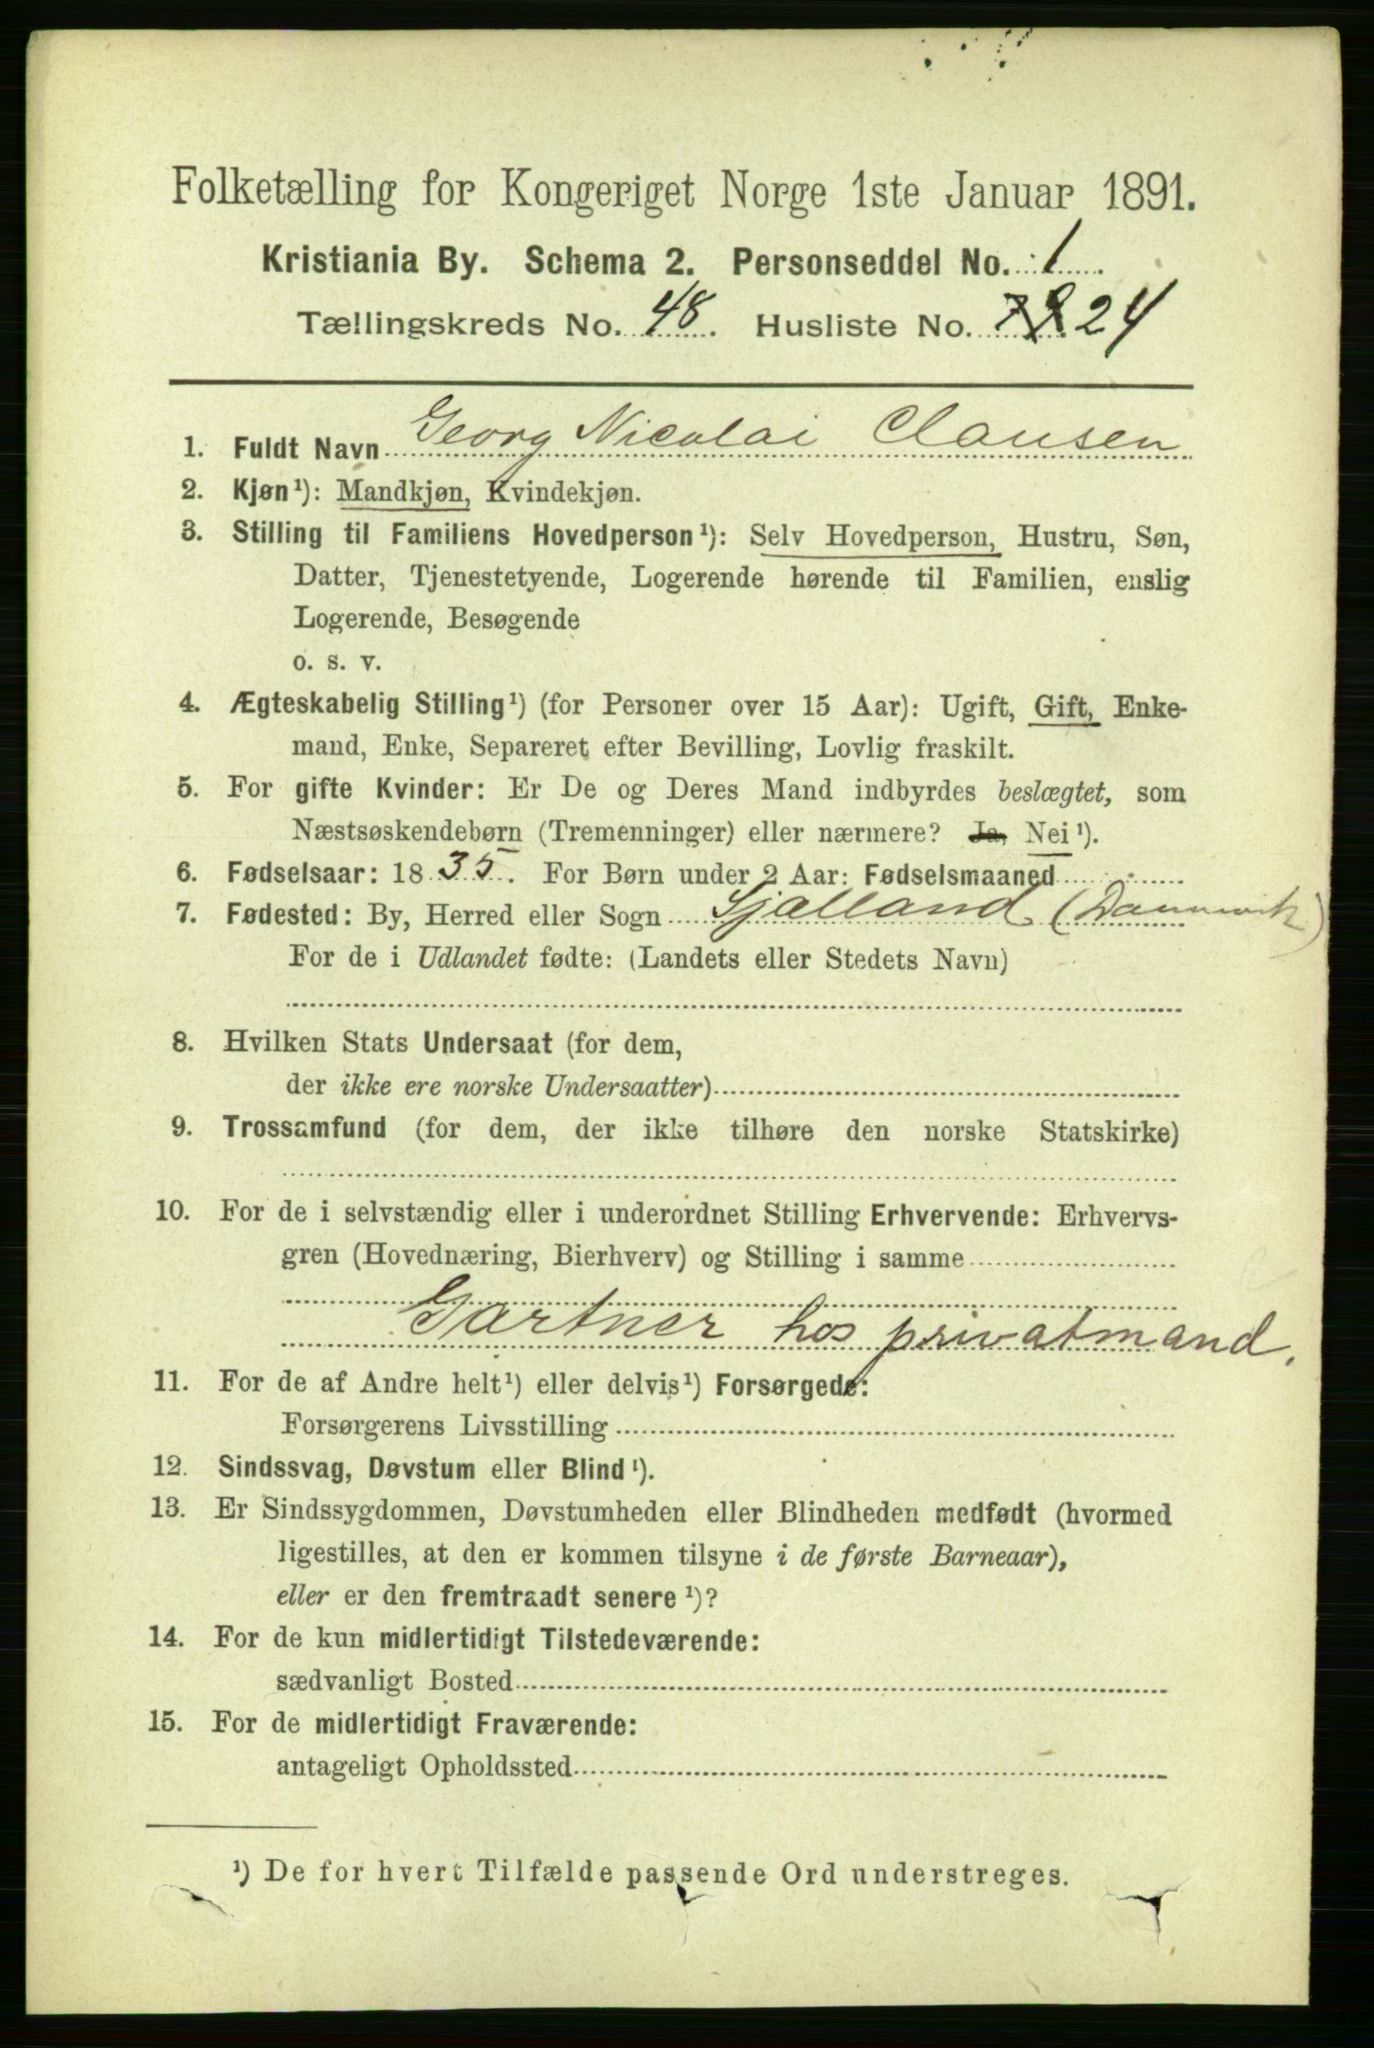 Folketælling for Kongeriget Norge 1ste Januar 1891.
Kristiania By. Schema 2. Personseddel No. 1.
Tællingskreds No. 48. Husliste No. 24
1. Fuldt Navn Georg Nicolai Clausen
2. Kjøn¹): Mandkjøn, Kvindekjøn.
3. Stilling til Familiens Hovedperson¹): Selv Hovedperson, Hustru, Søn,
Datter, Tjenestetyende, Logerende hørende til Familien, enslig
Logerende, Besøgende
o. s. v.
4. Ægteskabelig Stilling¹) (for Personer over 15 Aar): Ugift, Gift, Enke-
mand, Enke, Separeret efter Bevilling, Lovlig fraskilt.
5. For gifte Kvinder: Er De og Deres Mand indbyrdes beslægtet, som
Næstsøskendebørn (Tremenninger) eller nærmere? Ja, Nei¹).
6. Fødselsaar: 1835. For Børn under 2 Aar: Fødselsmaaned
7. Fødested: By, Herred eller Sogn Sjælland (Danmark)
For de i Udlandet fødte: (Landets eller Stedets Navn)
8. Hvilken Stats Undersaat (for dem,
der ikke ere norske Undersaatter)
9. Trossamfund (for dem, der ikke tilhøre den norske Statskirke)
10. For de i selvstændig eller i underordnet Stilling Erhvervende: Erhvervs-
gren (Hovednæring, Bierhverv) og Stilling i samme
Gartner hos privatmand.
11. For de af Andre helt¹) eller delvis¹) Forsørgede:
Forsørgerens Livsstilling
12. Sindssvag, Døvstum eller Blind¹).
13. Er Sindssygdommen, Døvstumheden eller Blindheden medfødt (hvormed
ligestilles, at den er kommen tilsyne i de første Barneaar),
eller er den fremtraadt senere¹)?
14. For de kun midlertidigt Tilstedeværende:
sædvanligt Bosted
15. For de midlertidigt Fraværende:
antageligt Opholdssted
¹) De for hvert Tilfælde passende Ord understreges.